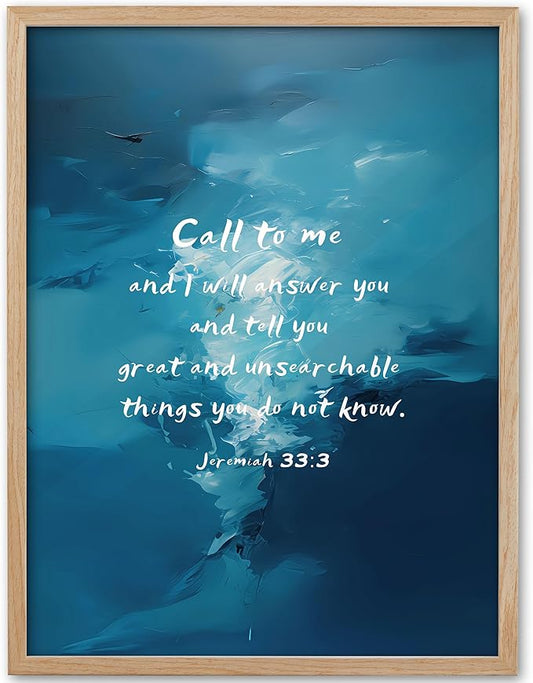 Call to me
and I will answer you
and tell you
great and unsearchable
things you do not know.
Jeremiah 33:3